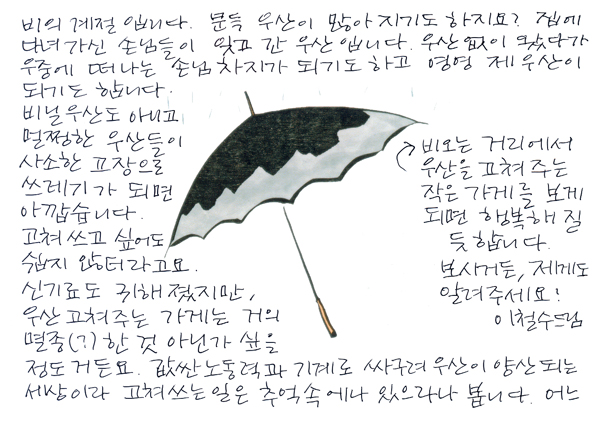 비의 계절입니다. 문득 우산이 많아지기도 하지요? 집에
다녀가신 손님들이 잊고 간 우산입니다. 우산없이 왔다가
우중에 떠나는 손님 차지가 되기도 하고 영영 제 우산이
되기도 합니다.
비닐우산도 아니고
멀쩡한 우산들이
사소한 고장으로
쓰레기가 되면
아깝습니다.
고쳐쓰고 싶어도
쉽지 않더라고요.
신기료도 귀해졌지만,
우산 고쳐주는 가게는 거의
멸종(?)한 것 아닌가 싶을
정도거든요. 값싼 노동력과 기계로 싸구려 우산이 양산되는
세상이라 고쳐쓰는 일은 추억속에나 있으려나 봅니다. 어느
비오는 거리에서
우산을 고쳐주는
작은 가게를 보게
되면 행복해질
듯합니다.
보시거든, 제게도
알려주세요!
이철수드림